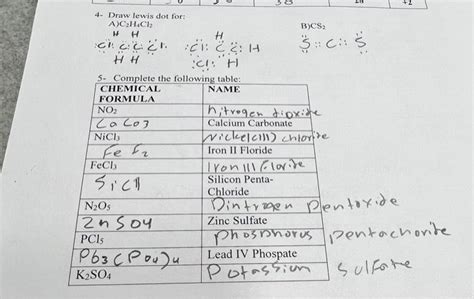 4- Draw lewis dot for:
A)C₂H₄Cl₂ B)CS₂
H H H
:Cl: C: C: Cl: :Cl: C: C: H S::C::S
H H :Cl: H
5- Complete the following table:
CHEMICAL FORMULA NAME
NO₂ nitrogen dioxide
CaCo3 Calcium Carbonate
NiCl₃ Nickel(III) chloride
FeF₂ Iron II Floride
FeCl₃ Iron III Cloride
Silicon Penta-
SiCl Chloride
N₂O₅ Dintrogen Pentoxide
ZnSO4 Zinc Sulfate
PCl₅ phosphorus pentachorite
Pb3(PO4)4 Lead IV Phospate
K₂SO4 Potassium sulfate